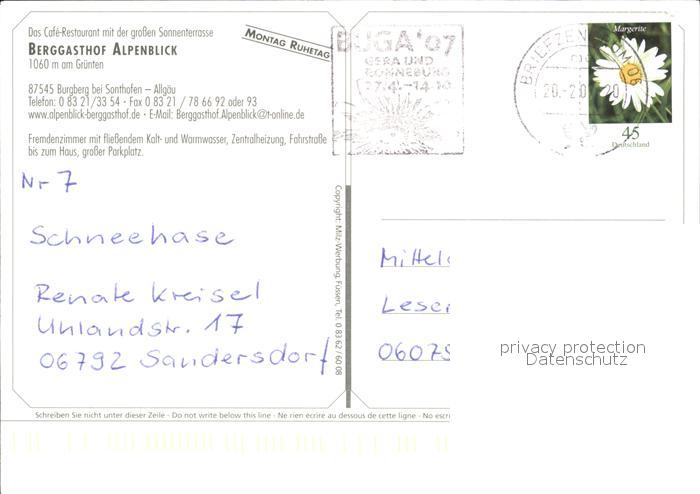 Das Café-Restaurant mit der großen Sonnenterrasse
BERGGASTHOF ALPENBLICK
1060 m am Grünten
MONTAG RUHETAG
87545 Burgberg bei Sonthofen – Allgäu
Telefon: 0 83 21/33 54 · Fax 0 83 21 / 78 66 92 oder 93
www.alpenblick-berggasthof.de · E-Mail: Berggasthof.Alpenblick@t-online.de
Fremdenzimmer mit fließendem Kalt- und Warmwasser, Zentralheizung, Fahrstraße
bis zum Haus, großer Parkplatz.
BUGA'07
GERA UND
RONNEBURG
27.4.-14.10
BRIEFZENTRUM 06
Margerite
45
Deutschland
Nr 7
Schneehase
Renate Kreisel
Uhlandstr. 17
06792 Sandersdorf
Copyright: Milz-Werbung, Füssen, Tel. 0 83 62 / 60 08
Mittel
Leser
06075
privacy protection
Datenschutz
Schreiben Sie nicht unter dieser Zeile - Do not write below this line - Ne rien ecrire au dessous de cette ligne - No escri